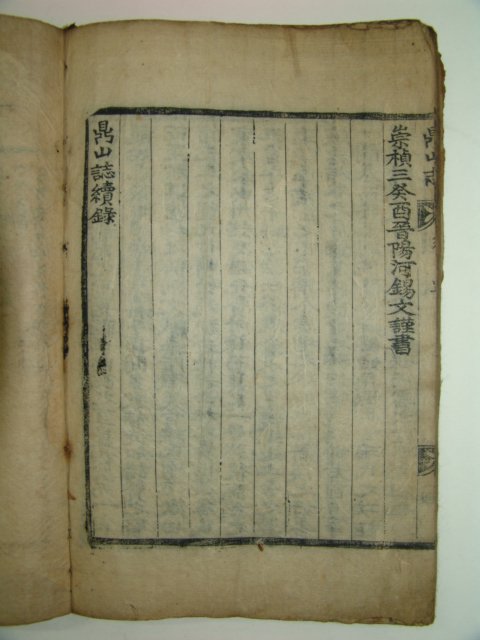 鼎山志
崇禎三癸酉晉陽河錫文謹書
鼎山誌續錄